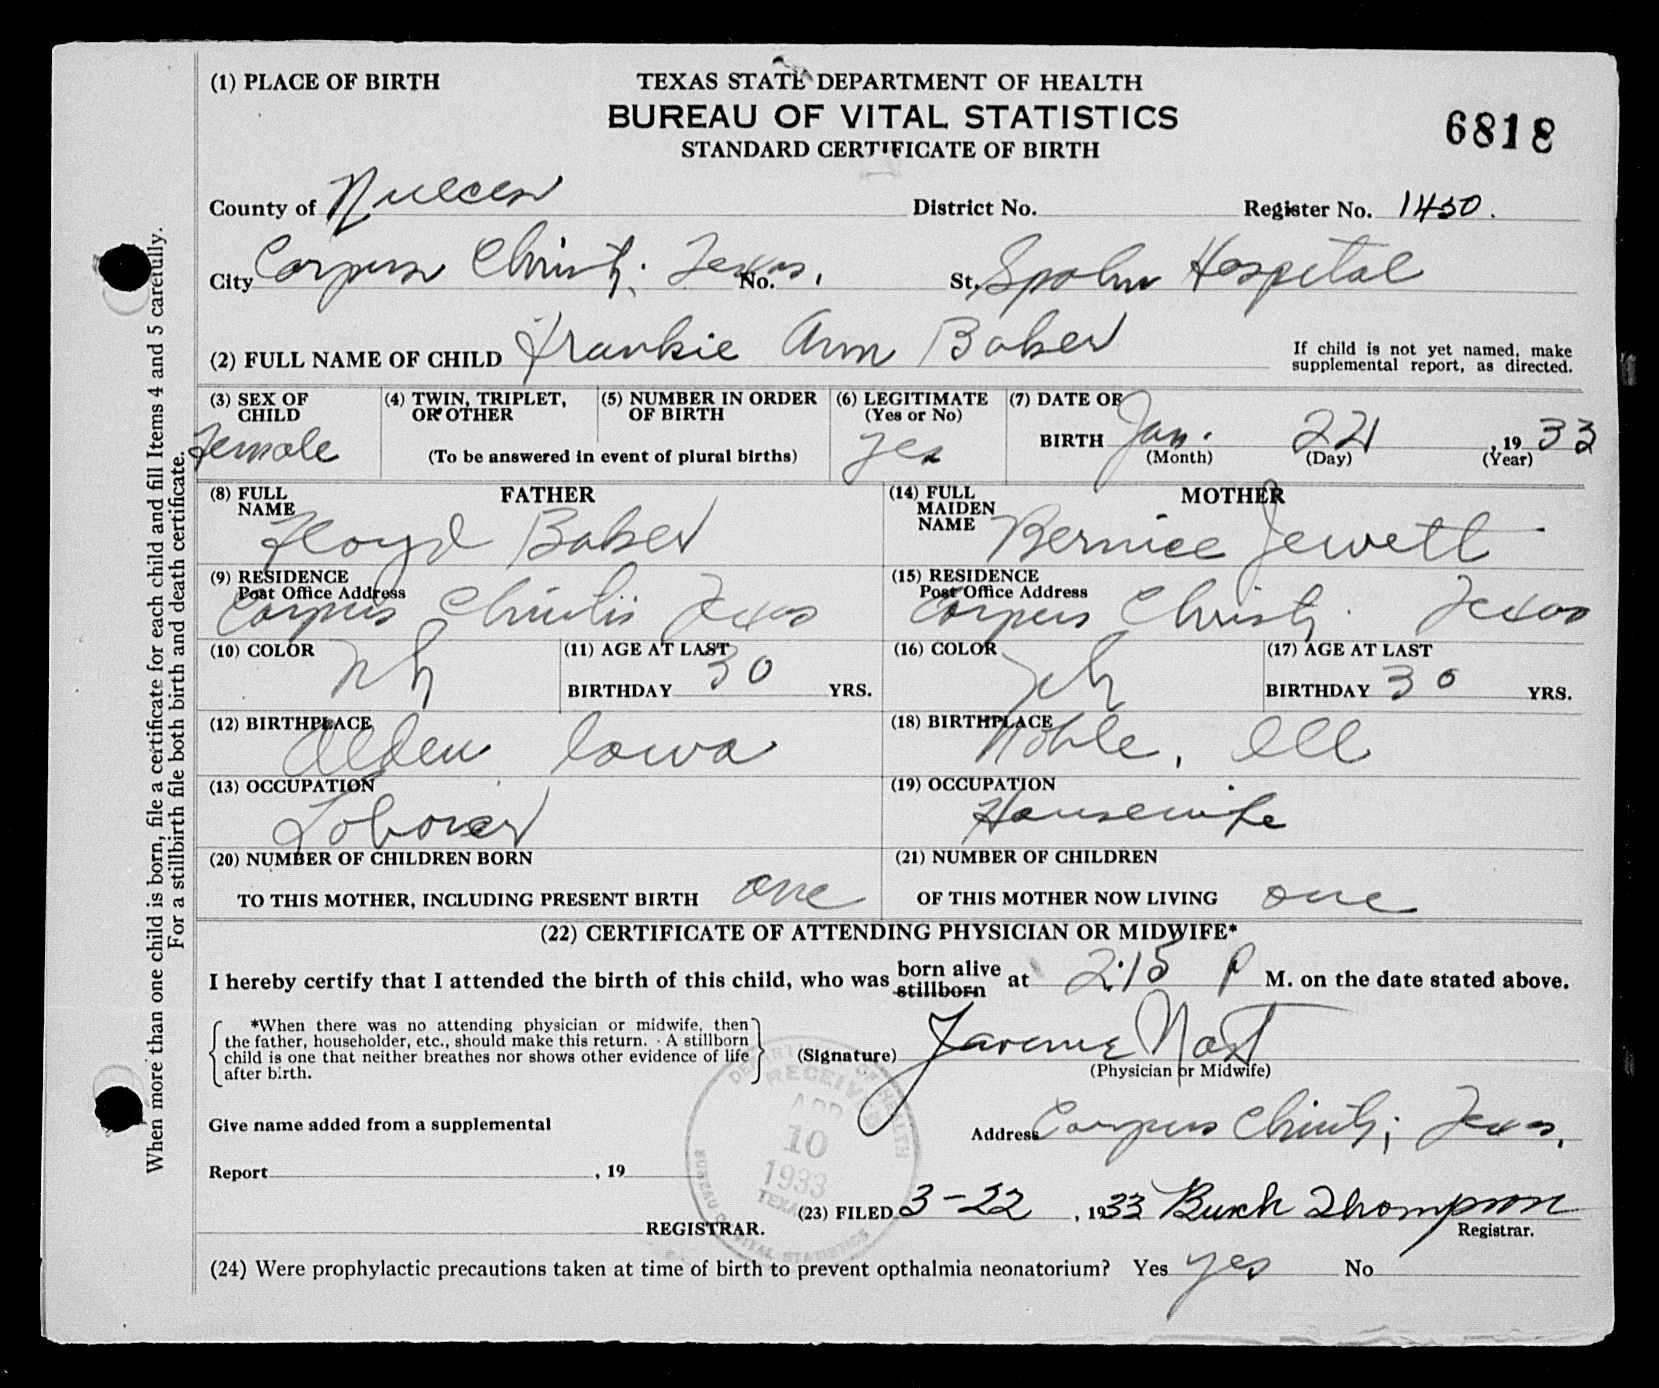 (1) PLACE OF BIRTH
TEXAS STATE DEPARTMENT OF HEALTH
BUREAU OF VITAL STATISTICS
STANDARD CERTIFICATE OF BIRTH
6818
County of Nueces District No. Register No. 1450.
City Corpus Christi, Texas, No. St. Spohn Hospital
(2) FULL NAME OF CHILD Frankie Ann Baker
If child is not yet named, make
supplemental report, as directed.
(3) SEX OF CHILD Female
(4) TWIN, TRIPLET, OR OTHER
(5) NUMBER IN ORDER OF BIRTH
(To be answered in event of plural births)
(6) LEGITIMATE (Yes or No) yes
(7) DATE OF BIRTH Jan. 22, 1933
(Month) (Day) (Year)
FATHER
(8) FULL NAME Floyd Baker
MOTHER
(14) FULL MAIDEN NAME Bernice Jewett
(9) RESIDENCE
Post Office Address
Corpus Christi Texas
(15) RESIDENCE
Post Office Address
Corpus Christi. Texas
(10) COLOR wh
(11) AGE AT LAST
BIRTHDAY 30 YRS.
(16) COLOR wh
(17) AGE AT LAST
BIRTHDAY 30 YRS.
(12) BIRTHPLACE Alden Iowa
(18) BIRTHPLACE Noble, Ill
(13) OCCUPATION Laborer
(19) OCCUPATION Housewife
(20) NUMBER OF CHILDREN BORN
TO THIS MOTHER, INCLUDING PRESENT BIRTH one
(21) NUMBER OF CHILDREN
OF THIS MOTHER NOW LIVING one
(22) CERTIFICATE OF ATTENDING PHYSICIAN OR MIDWIFE*
I hereby certify that I attended the birth of this child, who was born alive stillborn at 2:15 P M. on the date stated above.
*When there was no attending physician or midwife, then
the father, householder, etc., should make this return. A stillborn
child is one that neither breathes nor shows other evidence of life
after birth.
(Signature) Jerome Nast
(Physician or Midwife)
Give name added from a supplemental
Address Corpus Christi, Texas,
Report , 19
REGISTRAR.
DEPARTMENT OF HEALTH
RECEIVED
APR
10
1933
TEXAS
BUREAU OF VITAL STATISTICS
(23) FILED 3-22, 1933 Thompson
Registrar.
(24) Were prophylactic precautions taken at time of birth to prevent opthalmia neonatorium? Yes yes No
When more than one child is born, file a certificate for each child and fill Items 4 and 5 carefully.
For a stillbirth file both birth and death certificate.